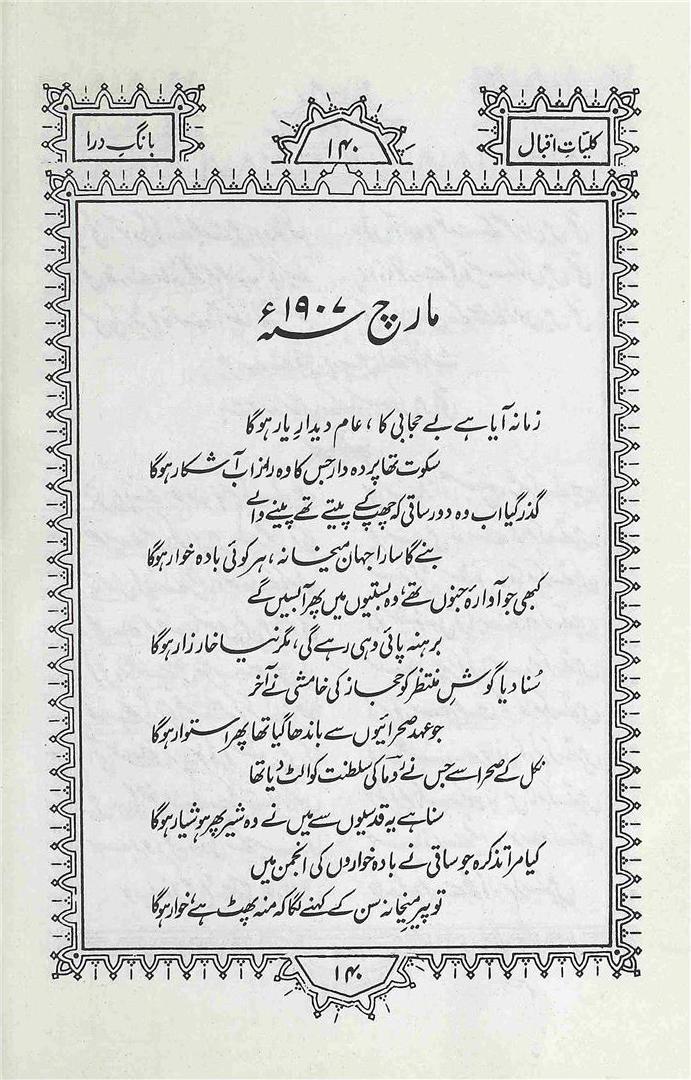 کلیّاتِ اقبال
۱۴۰
بانگِ درا
مارچ سنہ ۱۹۰۷ء
زمانہ آیا ہے بے حجابی کا ، عام دیدارِ یار ہو گا
سکوت تھا پردہ دار جس کا وہ راز اب آشکار ہو گا
گذر گیا اب وہ دورِ ساقی کہ چھپ کے پیتے تھے پینے والے
بنے گا سارا جہان میخانہ ، ہر کوئی بادہ خوار ہو گا
کبھی جو آوارۂ جنوں تھے، وہ بستیوں میں پھر آ بسیں گے
برہنہ پائی وہی رہے گی، مگر نیا خارزار ہو گا
سُنا دیا گوشِ منتظر کو حجاز کی خامشی نے آخر
جو عہد صحرائیوں سے باندھا گیا تھا پھر استوار ہو گا
نکل کے صحرا سے جس نے روما کی سلطنت کو الٹ دیا تھا
سنا ہے یہ قدسیوں سے میں نے وہ شیر پھر ہوشیار ہو گا
کیا مرا تذکرہ جو ساقی نے بادہ خواروں کی انجمن میں
تو پیرِ میخانہ سن کے کہنے لگا کہ منہ پھٹ ہے، خوار ہو گا
۱۴۰